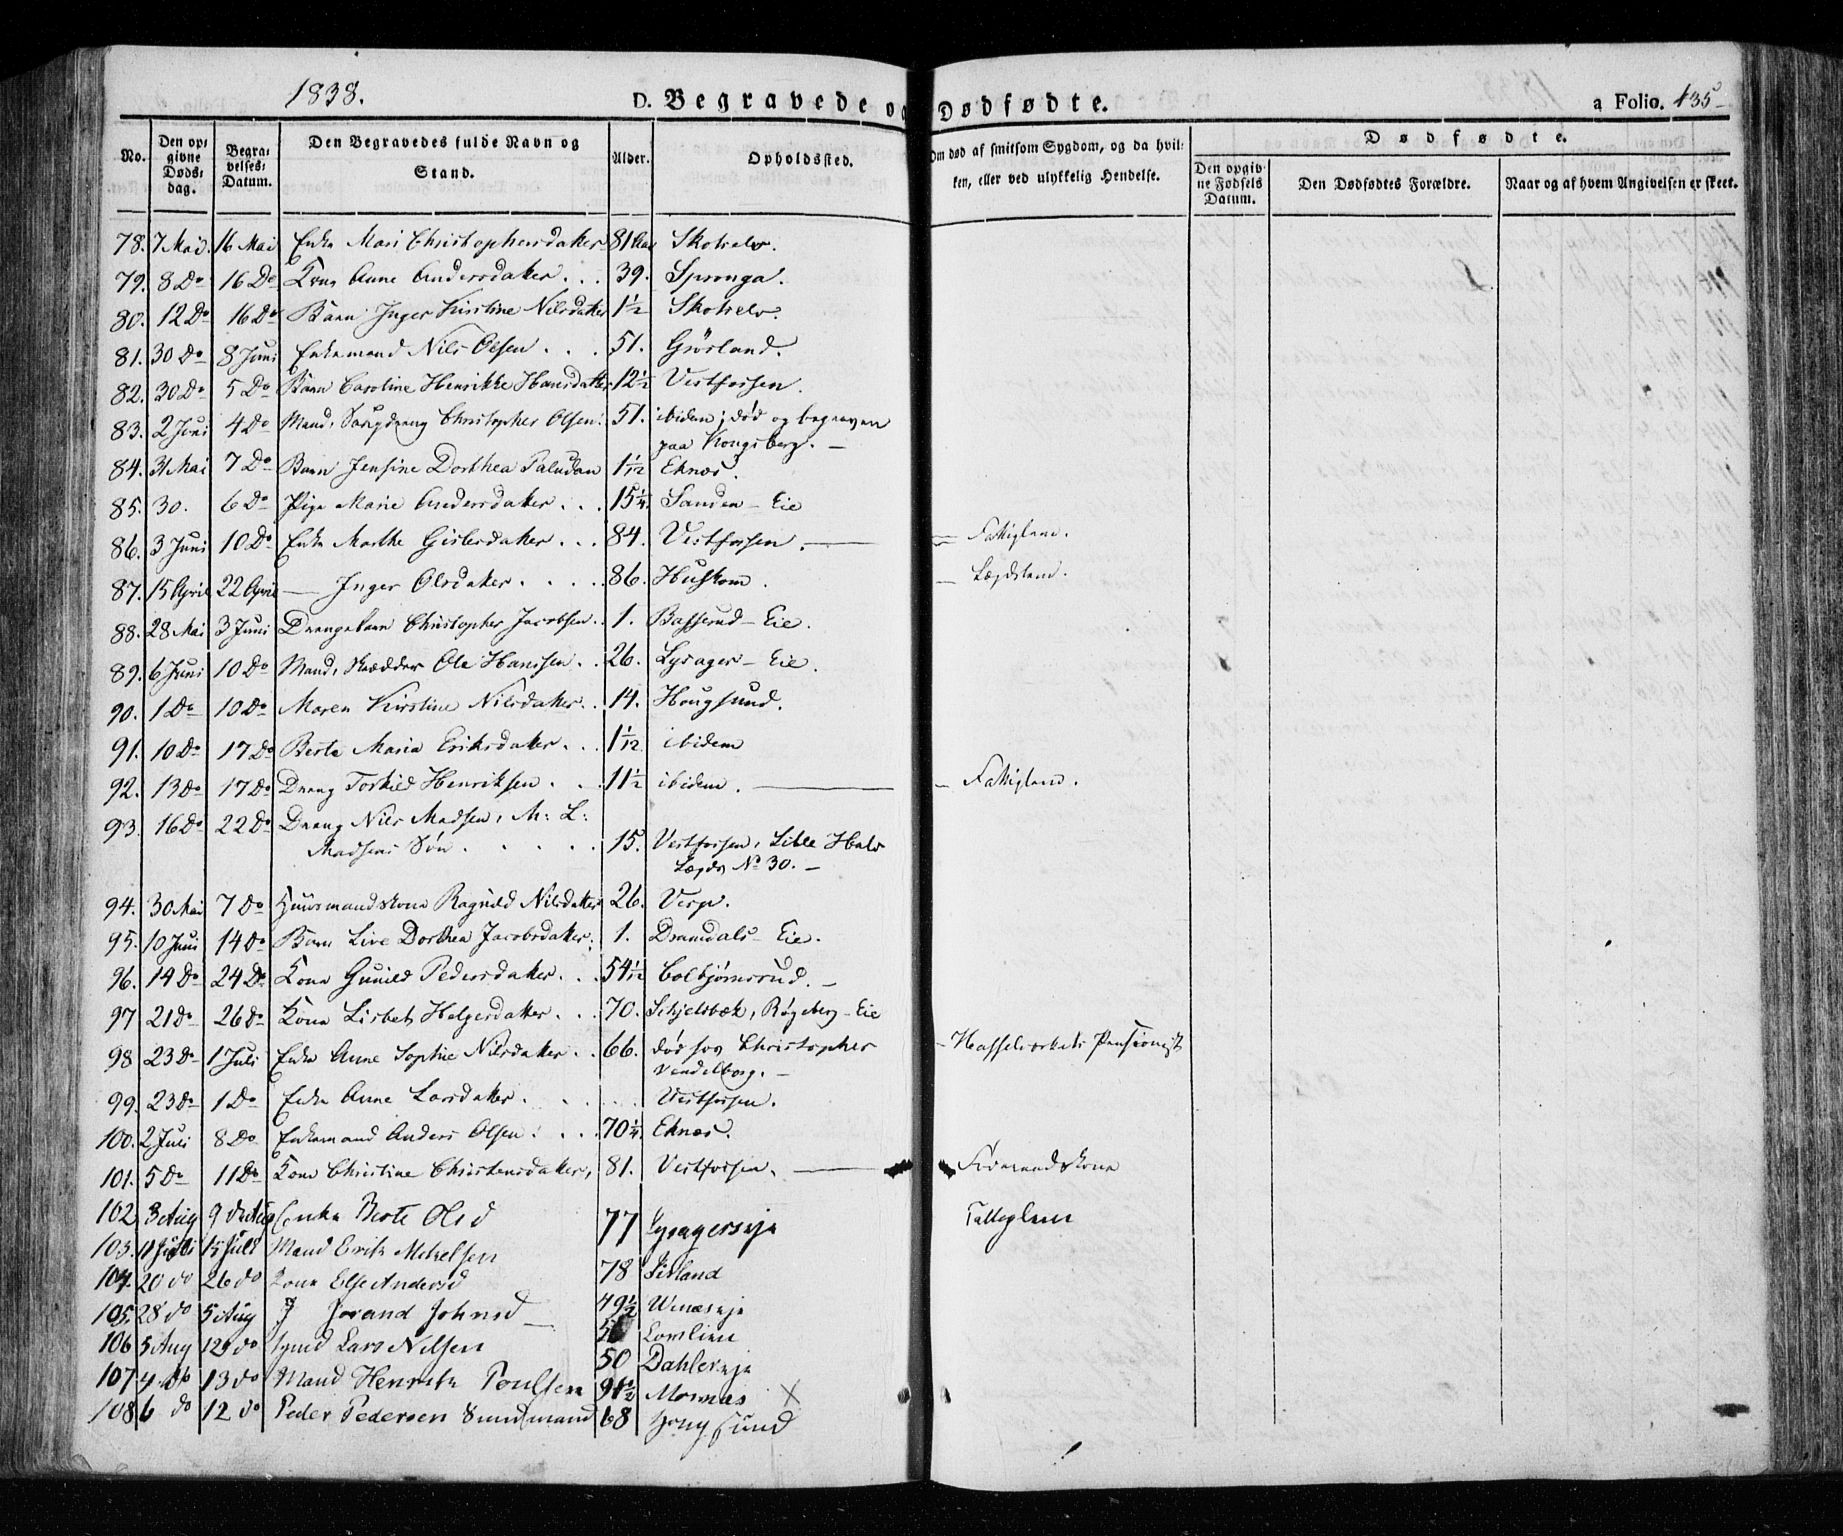 1838.
D. Begravede og Dødfødte. a Folio. 435
No. Den opgivne Dødsdag. Begravelses-Datum. Den Begravedes fulde Navn og Stand. Alder. Opholdssted. Om død af smitsom Sygdom, og da hvilken, eller ved ulykkelig Hendelse. Dødfødte. Den opgivne Fødsels Datum. Den Dødfødtes Forældre. Naar og af hvem Angivelsen er skeet.
78. 7 Mai. 16 Mai Enke Mari Christophersdatter 81 Aar Skotselv.
79. 8 Do 16 Do Kone Anne Andersdatter 39. Spronga.
80. 12 Do 16 Do Barn Inger Kirstine Nilsdatter 1½ Skotselv.
81. 30 Do 8 Juni Enkemand Nils Olsen 51. Grøsland.
82. 30 Do 5 Do Barn Caroline Henrikke Hansdatter 12½ Vestfossen.
83. 2 Juni 4 Do Mand, Christopher Olsen 51. ibidem; død og begraven
paa Kongsberg. —
84. 31 Mai 7 Do Barn Jensine Dorthea Paludan 1 1/12 Eknæs.
85. 30. 6 Do Pige Marie Andersdatter 15¼ Sanden - Eie
86. 3 Juni 10 Do Enke Marthe Gislesdatter 84. Vestfossen. — Fattiglem.
87. 15 April 22 April — Inger Olsdatter 86. Huskom. — Lægdslem.
88. 28 Mai 3 Juni Drengebarn Christopher Jacobsen 1. Basserud - Eie.
89. 6 Juni 10 Do Mand, Skrædder Ole Hanssen 26. Lysager - Eie.
90. 1 Do 10 Do Maren Kirstine Nilsdatter 14. Hougsund.
91. 10 Do 17 Do Berte Maria Eriksdatter 1 1/12 ibidem
92. 13 Do 17 Do Dreng Torkild Henriksen 11½ ibidem. — Fattiglem.
93. 16 Do 22 Do Dreng Nils Madsen, M: L:
Madsens Søn 15. Vestfossen, Lille Hals
Lægds No 30. —
94. 30 Mai 7 Do Huusmandskone Ragnild Nilsdatter 26. Vesp.
95. 10 Juni 14 Do Barn Live Dorthea Jacobsdatter 1. Dramdals - Eie.
96. 14 Do 24 Do Kone Gunild Pedersdatter 54 1/12 Colbjørnsrud. —
97 21 Do 26 Do Kone Lisbet Helgesdatter 70. Schjelsbæk, Røgeberg - Eie
98 23 Do 1 Juli Enke Anne Sophie Nilsdatter 66. død hos Christopher — Hasselverkets Pensionist
Vendelborg. —
99. 23 Do 1 Do Enke Anne Larsdatter Vestfossen.
100. 2 Juli 8 Do Enkemand Anders Olsen 70¼ Eknæs.
101. 5 Do 11 Do Kone Christine Christensdatter, 81. Vestfossen.
102. 3 Aug 9 Enke Berte Olsd 77 Lysagerseje Fattiglem
103. 11 Juli 15 Juli Mand Erik Mikelsen
104. 20 do 26 do Kone Else Andersd 78
105. 28 do 5 Aug Jorand Johnsd — 49½
106 5 Aug 12 do Lars Nilsen Lomlien
107 4 do 13 do Mand Henrik Poulsen 50 Dahlereje
108 6 do 12 do Peder Pedersen 68 Hougsund